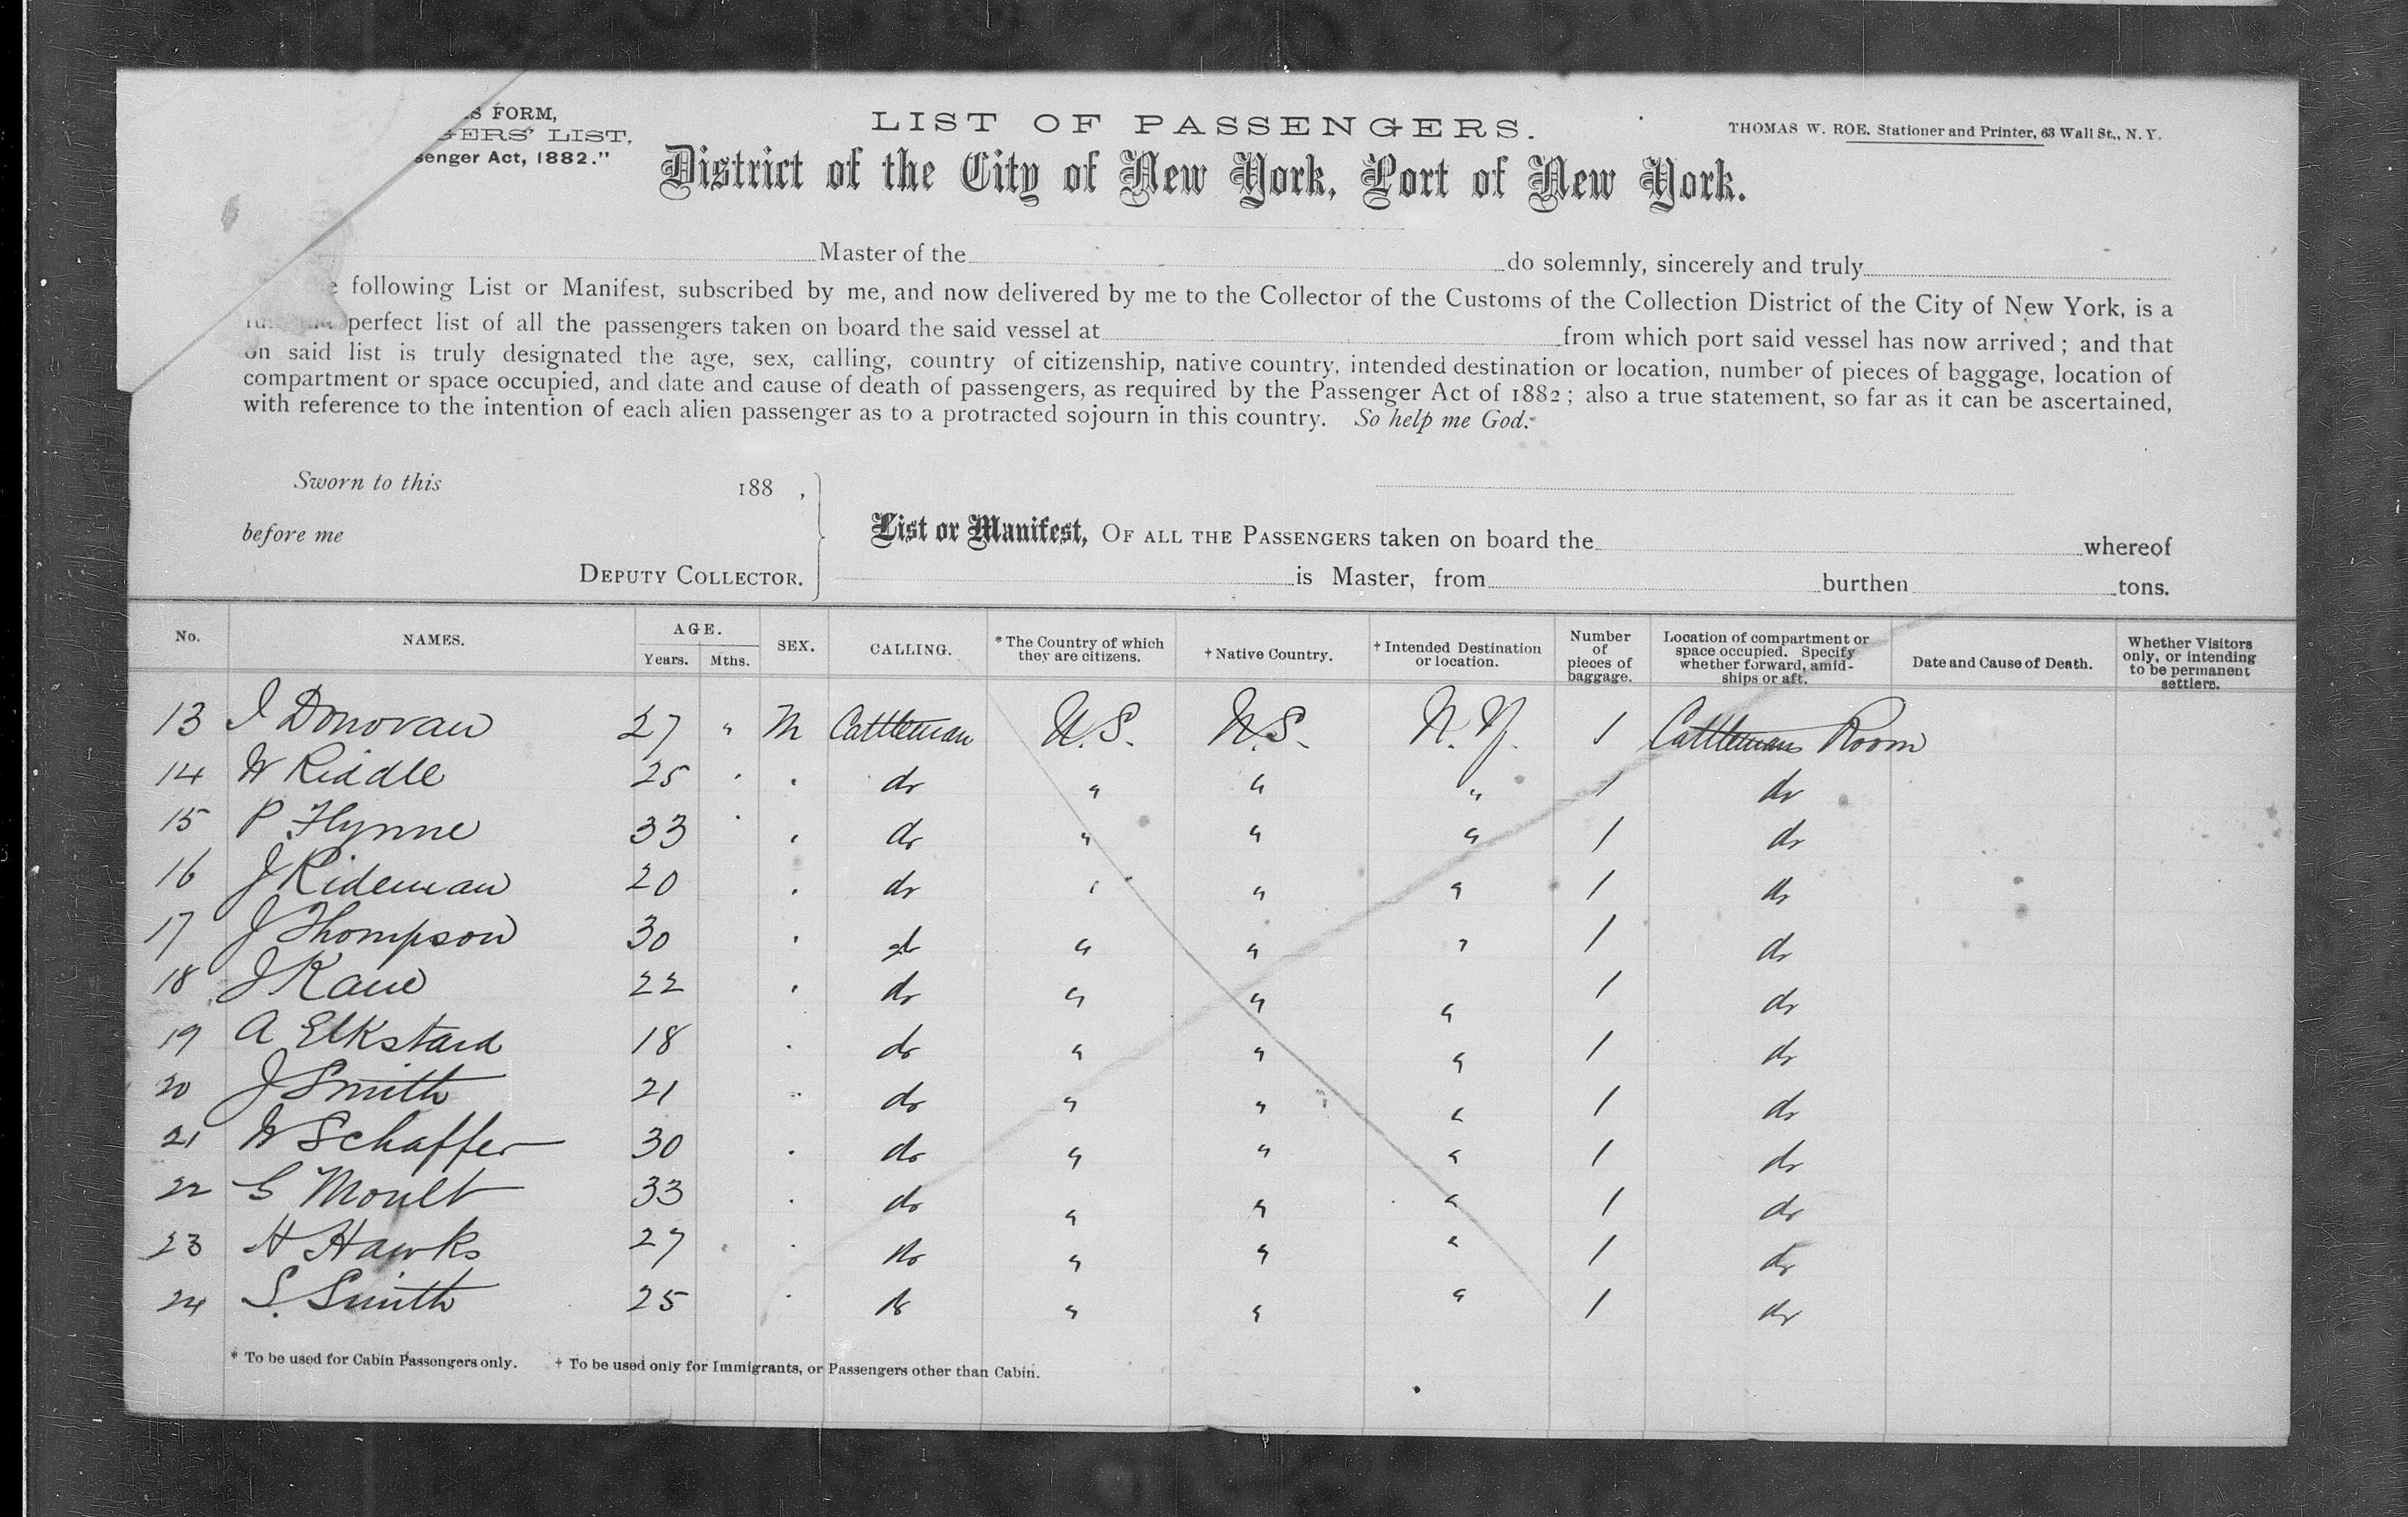 S FORM,
GERS' LIST,
senger Act, 1882."
LIST OF PASSENGERS.
THOMAS W. ROE, Stationer and Printer, 63 Wall St., N. Y.
District of the City of New York, Port of New York.
Master of the do solemnly, sincerely and truly
e following List or Manifest, subscribed by me, and now delivered by me to the Collector of the Customs of the Collection District of the City of New York, is a
perfect list of all the passengers taken on board the said vessel at from which port said vessel has now arrived; and that
on said list is truly designated the age, sex, calling, country of citizenship, native country, intended destination or location, number of pieces of baggage, location of
compartment or space occupied, and date and cause of death of passengers, as required by the Passenger Act of 1882; also a true statement, so far as it can be ascertained,
with reference to the intention of each alien passenger as to a protracted sojourn in this country. So help me God.
Sworn to this 188 ,
before me
DEPUTY COLLECTOR.
List or Manifest, OF ALL THE PASSENGERS taken on board the whereof
is Master, from burthen tons.
No. NAMES. AGE. Years. Mths. SEX. CALLING. * The Country of which they are citizens. † Native Country. † Intended Destination or location. Number of pieces of baggage. Location of compartment or space occupied. Specify whether forward, amid-ships or aft. Date and Cause of Death. Whether Visitors only, or intending to be permanent settlers.
13 J Donovan 27 " M Cattleman U.S. U.S. N.Y. 1 Cattlemans Room
14 W Riddle 25 " " do " " " 1 do
15 P Flynne 33 " " do " " " 1 do
16 J Rideman 20 " do " " " 1 do
17 J Thompson 30 " do " " " 1 do
18 J Kane 22 " do " " " 1 do
19 A Elkstard 18 " do " " " 1 do
20 J Smith 21 " do " " " 1 do
21 W Schaffer 30 " do " " " 1 do
22 G Moult 33 " do " " " 1 do
23 H Hawks 27 " do " " " 1 do
24 S. Smith 25 " do " " " 1 do
* To be used for Cabin Passengers only. † To be used only for Immigrants, or Passengers other than Cabin.